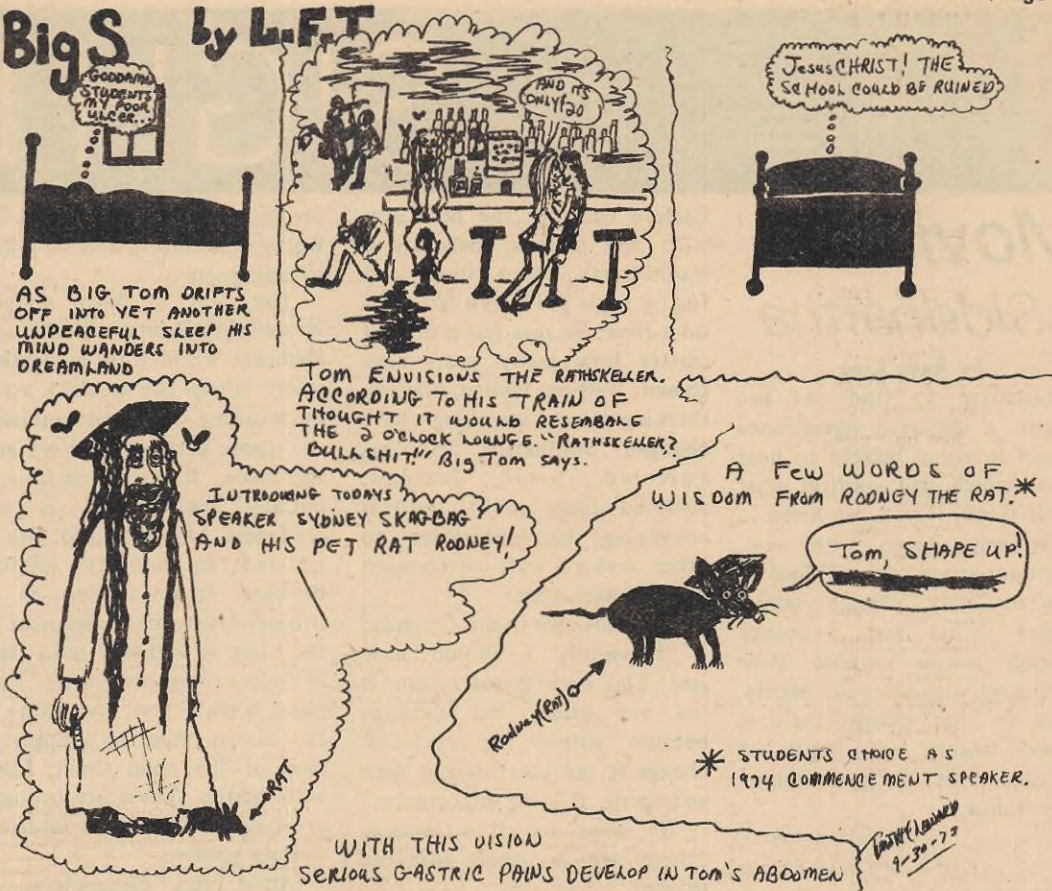 Big S by L.F.T
GODDAMN
STUDENTS
MY POOR
ULCER...
AS BIG TOM DRIFTS
OFF INTO YET ANOTHER
UNPEACEFUL SLEEP HIS
MIND WANDERS INTO
DREAMLAND
AND ITS
ONLY 1:20
TOM ENVISIONS THE RATHSKELLER.
ACCORDING TO HIS TRAIN OF
THOUGHT IT WOULD RESEMBALE
THE 2 O'CLOCK LOUNGE. "RATHSKELLER?
BULLSHIT!" Big Tom SAYS.
Jesus CHRIST! THE
SCHOOL COULD BE RUINED
INTRODUCING TODAYS
SPEAKER SYDNEY SKAGBAG
AND HIS PET RAT RODNEY!
RAT
A FEW WORDS OF
WISDOM FROM RODNEY THE RAT.*
Tom, SHAPE UP!
Rodney (RAT)
* STUDENTS CHOICE AS
1974 COMMENCEMENT SPEAKER.
9-30-73
WITH THIS VISION
SERIOUS GASTRIC PAINS DEVELOP IN TOM'S ABDOMEN